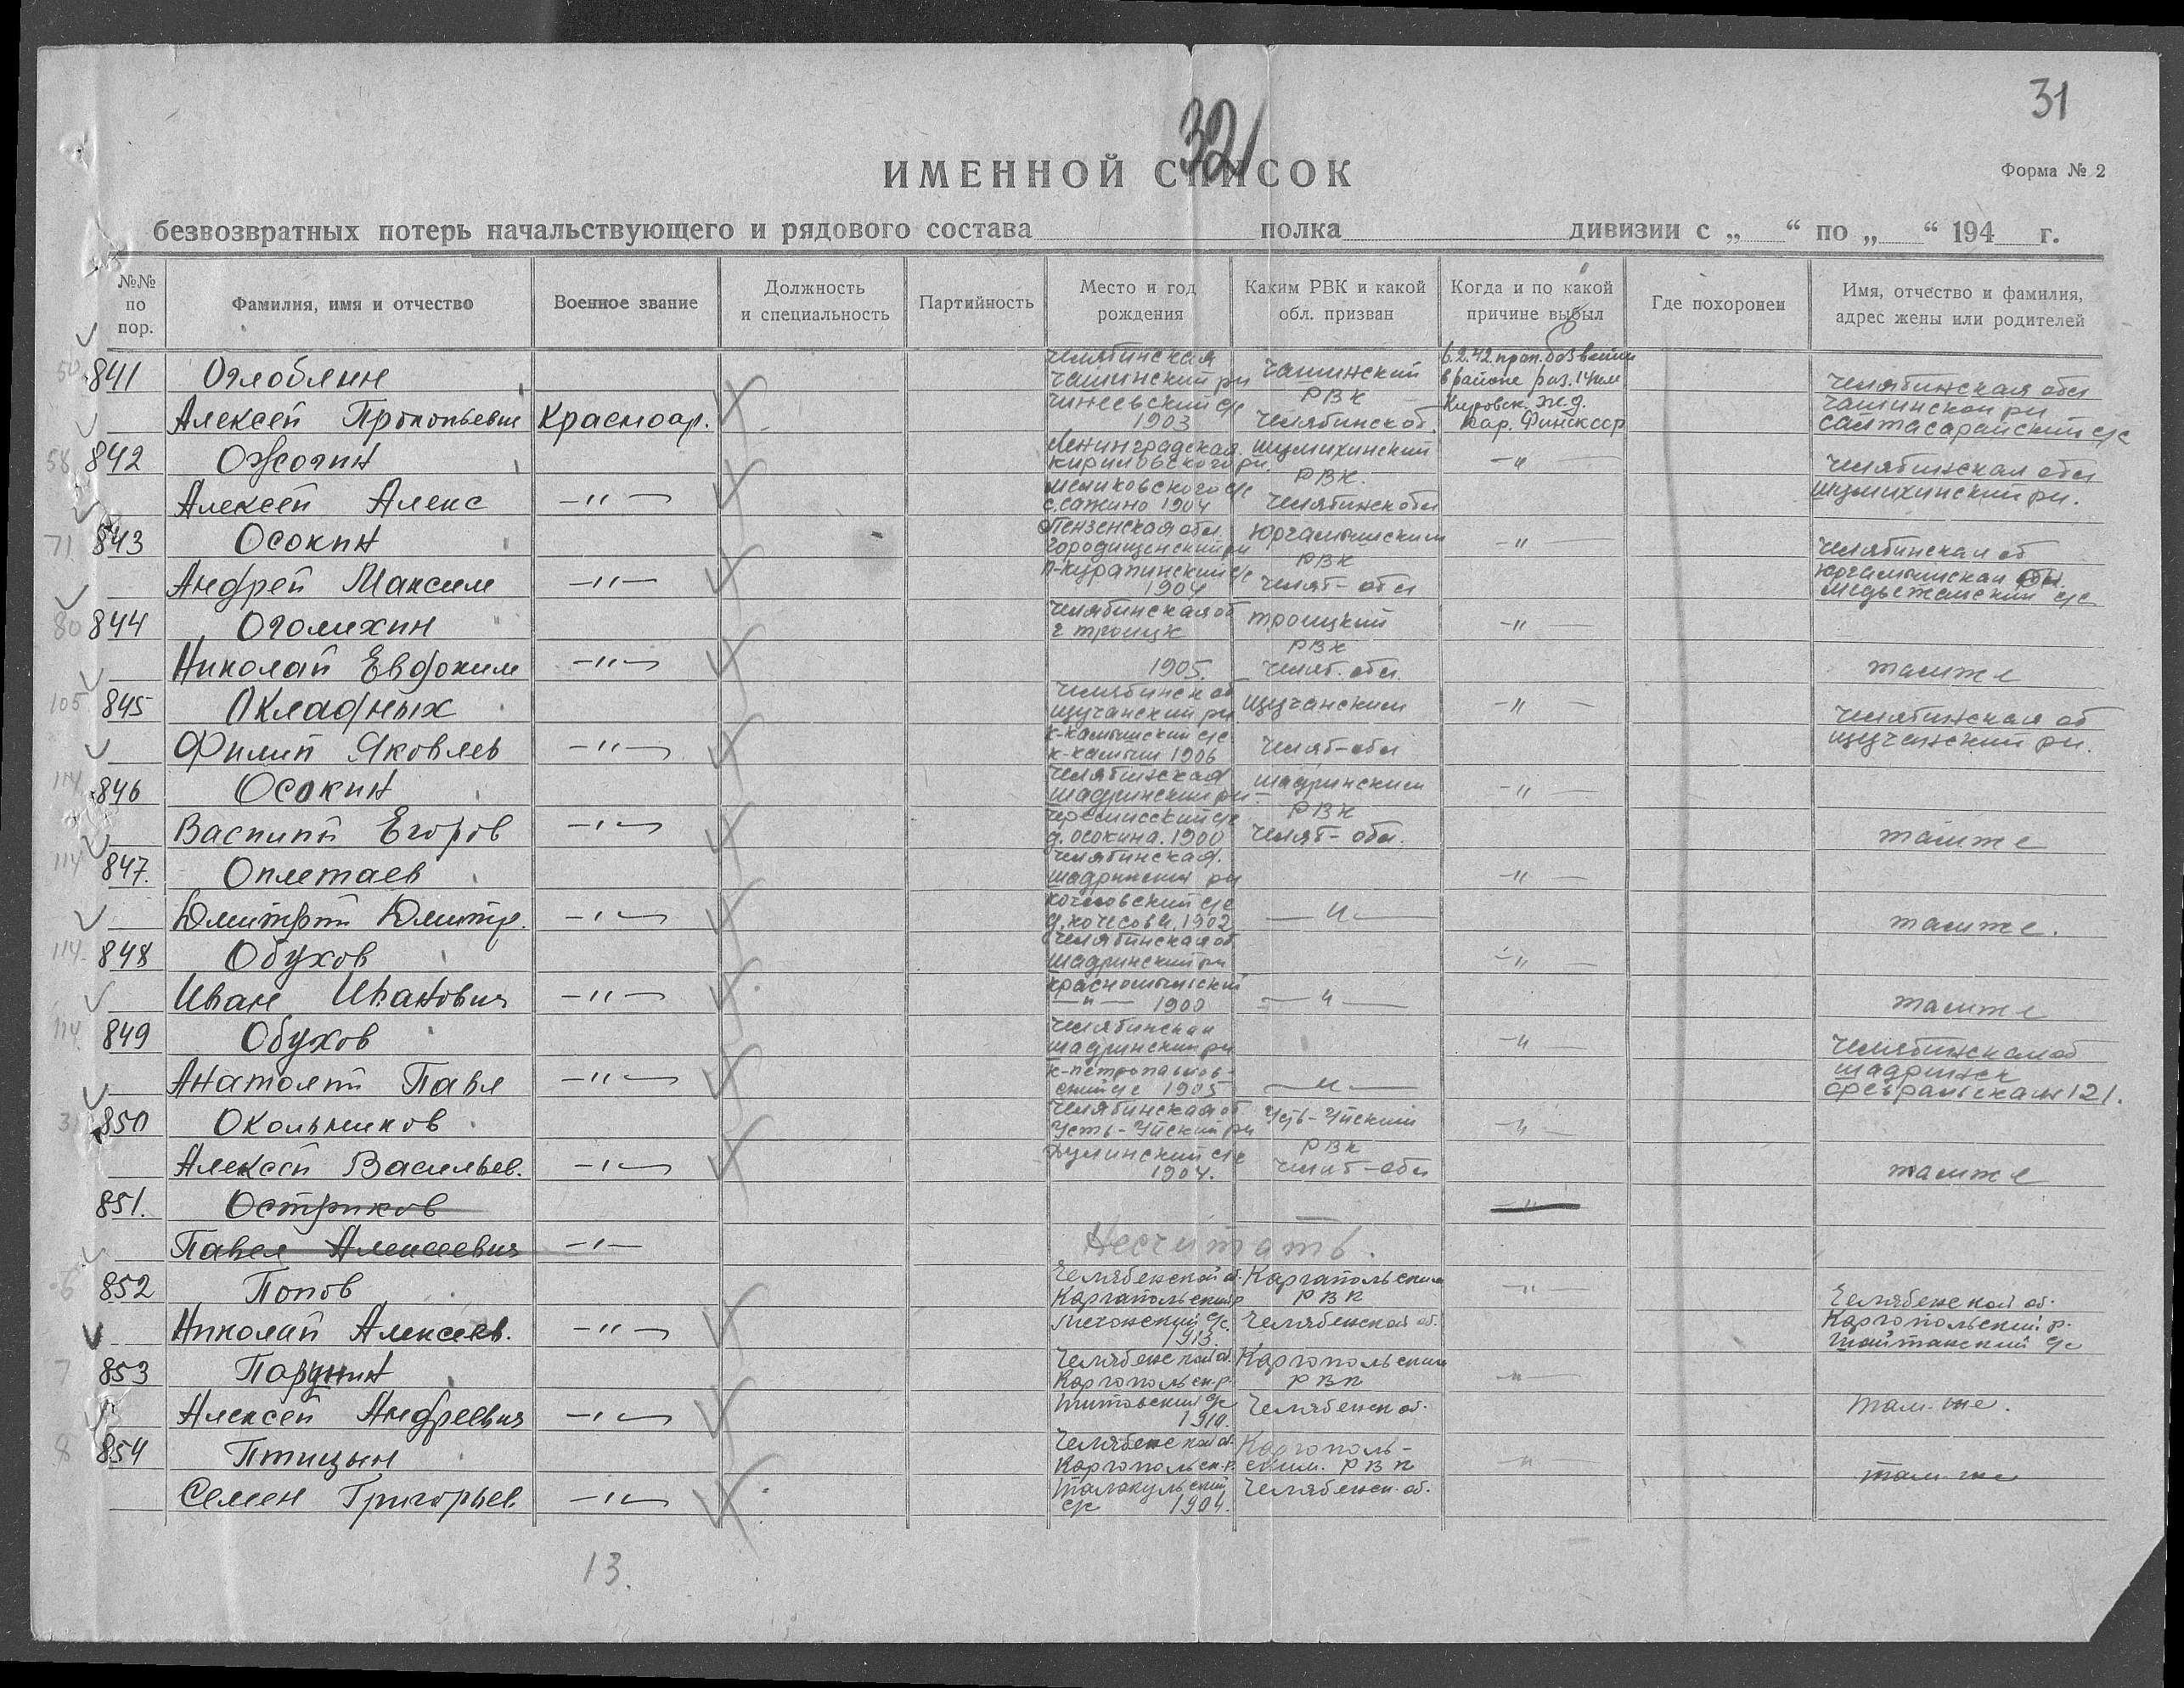 31
32
ИМЕННОЙ СПИСОК
Форма № 2
безвозвратных потерь начальствующего и рядового состава полка дивизии с „ “ по „ “ 194 г.
№№ по пор.
Фамилия, имя и отчество
Военное звание
Должность и специальность
Партийность
Место и год рождения
Каким РВК и какой обл. призван
Когда и по какой причине выбыл
Где похоронен
Имя, отчество и фамилия, адрес жены или родителей
841 Оглоблин
Алексей Прокопьевич Красноар.
Челябинская
Чашинский рн
1903
Чашинский
РВК
Челябинск об.
6.2.42 проп. без вести
в районе раз. 14 км
Кировск. ж.д.
Кар. Финсср
Челябинская обл
Чашинский рн
58 842 Ожогин
Алексей Алекс —"—
Ленинградская
с. Сажино 1904
Шумихинский
РВК.
Челябинск обл
—"—
Челябинская обл
Шумихинский рн.
71 843 Осокин
Андрей Максим —"—
Пензенская обл
Городищенский рн
1904
Юргамышским
РВК
Челяб-обл
—"—
Челябинская об
80 844 Оголихин
Николай Евдоким —"—
Челябинская об
г Троицк
1905.
Троицкий
РВК
Челяб. обл.
—"—
там же
105 845 Окладных
Филип Яковлев —"—
Челябинск об
Щучанский рн
1906
Щучанским
Челяб-обл
—"—
Челябинская об
Щучанский рн.
114 846 Осокин
Василий Егоров —"—
Челябинская
Шадринский рн
д. Осокина. 1900
Шадринским
РВК
Челяб-обл.
—"—
там же
114 847. Оплетаев
Дмитрий Дмитр. —"—
Челябинская.
Шадринский рн
1902
—"—
—"—
там же.
114 848 Обухов
Иван Иванович —"—
Челябинская об
Шадринский рн
—"— 1900
—"—
—"—
там же
114 849 Обухов
Анатолий Павл —"—
Челябинская
Шадринский рн
1905
—"—
—"—
Челябинская об
Шадринск
Февральская 121.
850 Окольников
Алексей Васильев. —"—
Челябинская об
Усть-Уйский рн
1904.
Усть-Уйский
РВК
Челяб-обл
—"—
там же
851. Остриков
Павел Алексеевич —"—
Не считать.
—"—
852 Попов
Николай Алексеев. —"—
Челябенской об.
Каргапольский р
Мехонский с/с
1913.
Каргапольским
РВК
Челябенской об.
—"—
Челябенской об.
Каргопольский р.
7 853
Алексей Андреевич —"—
Челябенской об.
Каргопольск.р.
1910.
Каргопольским
РВК
Челябенск об.
—"—
Там-же.
8 854 Птицын
Семен Григорьев —"—
Челябенской об.
Каргопольск.р.
с/с 1904.
Каргополь-
ским. РВК
Челябенск. об.
—"—
там-же
13.